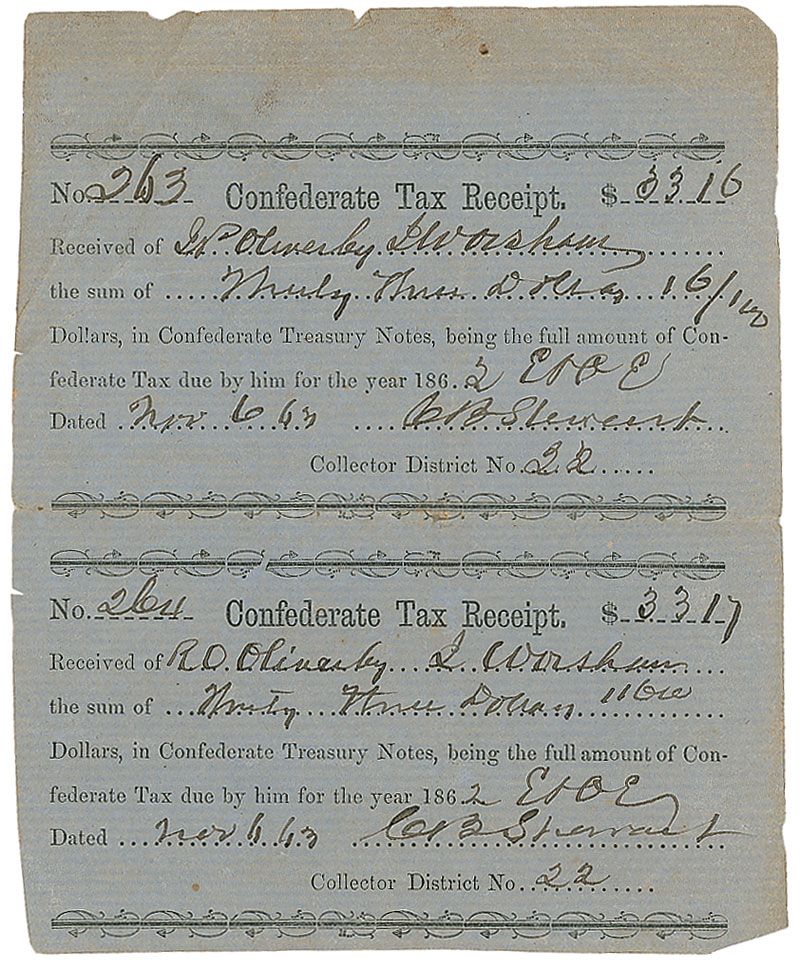 No. 263 Confederate Tax Receipt. $ 33 16
Received of J P Oliver by I Worsham
the sum of Thirty Three Dollars 16/100
Dollars, in Confederate Treasury Notes, being the full amount of Con-
federate Tax due by him for the year 186.2 E & O E
Dated Nov 6 63 C B Stewart
Collector District No. 22
No. 264 Confederate Tax Receipt. $ 33 17
Received of R O Oliver by I Worsham
the sum of Thirty Three Dollars
Dollars, in Confederate Treasury Notes, being the full amount of Con-
federate Tax due by him for the year 186.2 E & O E
Dated Nov 6 63 C B Stewart
Collector District No. 22